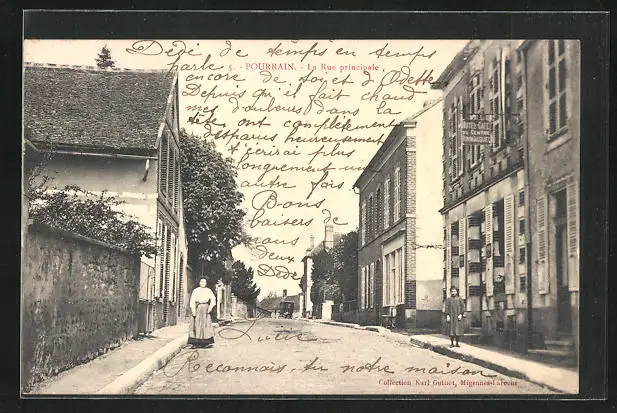 Dédé de temps en temps
parle 5. - POURRAIN. - La Rue principale
encore de toi et d'Odette
Depuis qu'il fait chaud
mes douleurs dans la
tête ont complètement
disparus heureusement
t'écrirai plus
longuement une
autre fois
Bons
baisers de
nous
deux
Dédé
HOTEL-CAFÉ
DU CENTRE
Reconnais-tu notre maison
Collection Karl Guillot, Migennes-Laroche